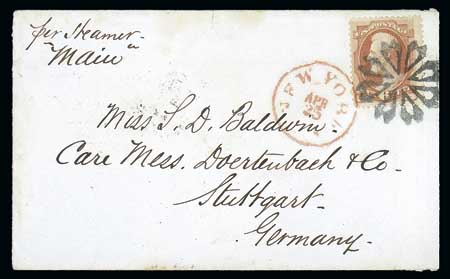 per Steamer
"Main"
U.S. POSTAGE
NEW YORK
APR
25
Miss S. D. Baldwin
Care Mess. Doertenbach & Co.
Stuttgart
Germany.